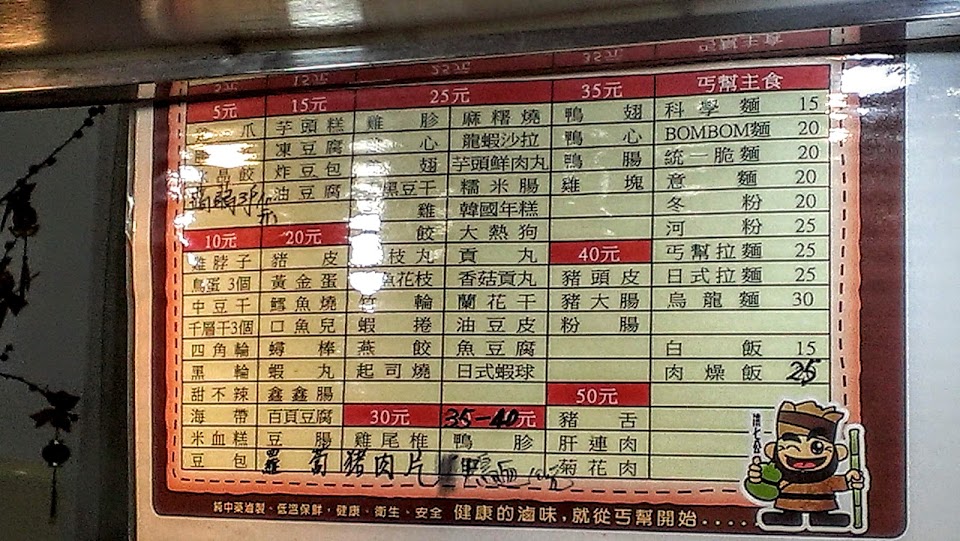 5元 15元 25元 35元 丐幫主食
爪 芋頭糕 雞胗 麻糬燒 鴨翅 科學麵 15
凍豆腐 心 龍蝦沙拉 鴨心 BOMBOM麵 20
水晶餃 炸豆包 翅 芋頭鮮肉丸 鴨腸 統一脆麵 20
油豆腐 黑豆干 糯米腸 雞塊 意麵 20
雞 韓國年糕 冬粉 20
餃 大熱狗 河粉 25
10元 20元 枝丸 貢丸 40元 丐幫拉麵 25
雞脖子 豬皮 花枝 香菇貢丸 豬頭皮 日式拉麵 25
鳥蛋3個 黃金蛋 竹輪 蘭花干 豬大腸 烏龍麵 30
中豆干 鱈魚燒 蝦捲 油豆皮 粉腸
千層干3個 口魚兒 燕餃 魚豆腐 白飯 15
四角輪 蟳棒 起司燒 日式蝦球 肉燥飯 25
黑輪 蝦丸 50元
甜不辣 鑫鑫腸 30元 35-40元 豬舌
海帶 百頁豆腐 雞尾椎 鴨胗 肝連肉
米血糕 豆腸 菊花肉
豆包 蘿蔔 豬肉片
純中藥滷製、低溫保鮮,健康、衛生、安全 健康的滷味,就從丐幫開始....